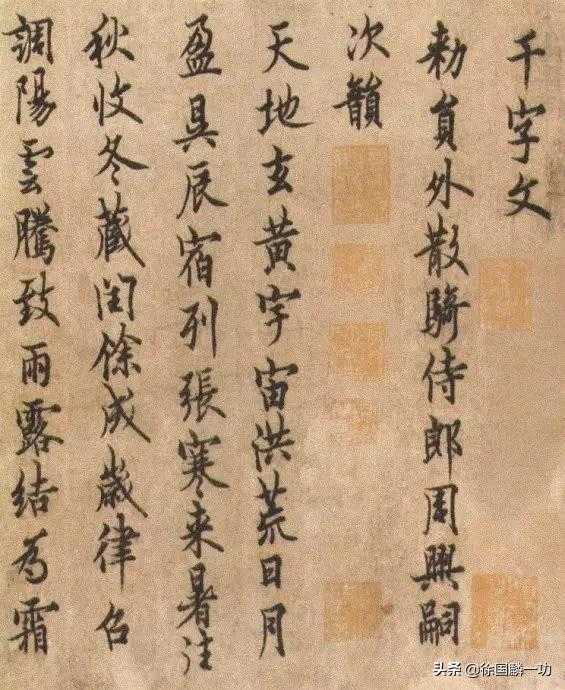 千字文
勑員外散騎侍郎周興嗣
次韻
天地玄黄宇宙洪荒日月
盈昃辰宿列張寒来暑往
秋收冬藏閏餘成歲律召
調陽雲騰致雨露結為霜
头条 @徐国麟一功